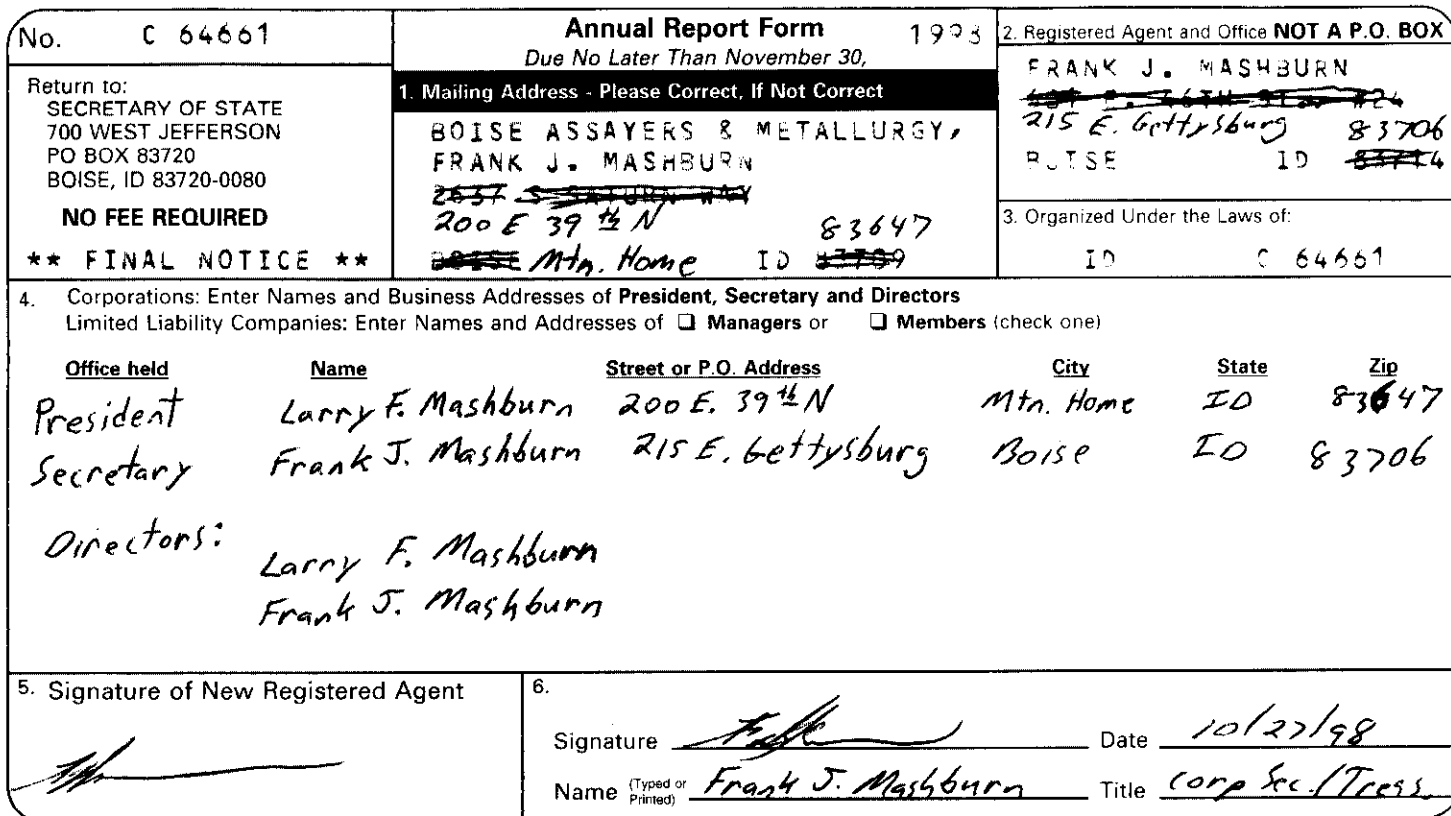 No. C 64661
Annual Report Form 1998
Due No Later Than November 30,
Return to:
SECRETARY OF STATE
700 WEST JEFFERSON
PO BOX 83720
BOISE, ID 83720-0080
NO FEE REQUIRED
** FINAL NOTICE **
1. Mailing Address - Please Correct, If Not Correct
BOISE ASSAYERS & METALLURGY,
FRANK J. MASHBURN
2637 S SATURN WAY
200 E 39th N 83647
BOISE Mtn. Home ID 83709
2. Registered Agent and Office NOT A P.O. BOX
FRANK J. MASHBURN
215 E. Gettysburg 83706
BOISE ID 83714
3. Organized Under the Laws of:
ID C 64661
4. Corporations: Enter Names and Business Addresses of President, Secretary and Directors
Limited Liability Companies: Enter Names and Addresses of ❑ Managers or ❑ Members (check one)
Office held Name Street or P.O. Address City State Zip
President Larry F. Mashburn 200 E. 39th N Mtn. Home ID 83647
Secretary Frank J. Mashburn 215 E. Gettysburg Boise ID 83706
Directors:
Larry F. Mashburn
Frank J. Mashburn
5. Signature of New Registered Agent
6.
Signature Date 10/27/98
Name (Typed or Printed) Frank J. Mashburn Title Corp Sec./Treas.